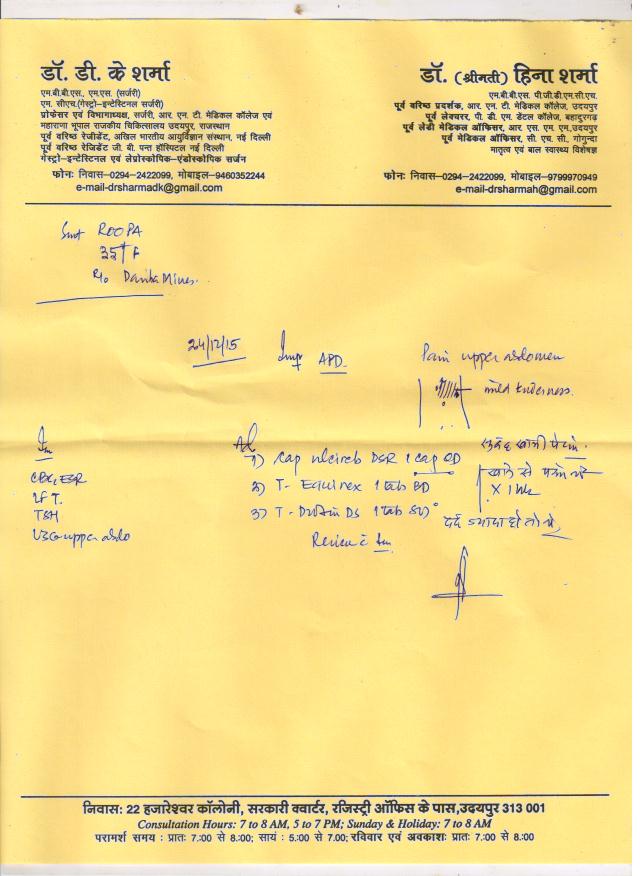 डॉ. डी. के शर्मा
एम.बी.बी.एस., एम.एस. (सर्जरी)
एम. सीएच.(गेस्ट्रो–इन्टेस्टिनल सर्जरी)
प्रोफेसर एवं विभागाध्यक्ष, सर्जरी, आर. एन. टी. मेडिकल कॉलेज एवं
महाराणा भूपाल राजकीय चिकित्सालय उदयपुर, राजस्थान
पूर्व वरिष्ठ रेजीडेंट, अखिल भारतीय आयुर्विज्ञान संस्थान, नई दिल्ली
पूर्व वरिष्ठ रेजिडेंट जी. बी. पन्त हॉस्पिटल नई दिल्ली
गेस्ट्रो–इन्टेस्टिनल एवं लेप्रोस्कोपिक–एंडोस्कोपिक सर्जन
फोनः निवास–0294-2422099, मोबाइल–9460352244
e-mail-drsharmadk@gmail.com
डॉ. (श्रीमती) हिना शर्मा
एम.बी.बी.एस. पी.जी.डी.एम.सी.एच.
पूर्व वरिष्ठ प्रदर्शक, आर. एन. टी. मेडिकल कॉलेज, उदयपुर
पूर्व लेक्चरर, पी. डी. एम. डेटल कॉलेज, बहादुरगढ
पूर्व लेडी मेडिकल ऑफिसर, आर. एस. एम. एम,उदयपुर
पूर्व मेडिकल ऑफिसर, सी. एच. सी., गोगुन्दा
मातृत्व एवं बाल स्वास्थ्य विशेषज्ञ
फोनः निवास–0294-2422099, मोबाइल–9799970949
e-mail-drsharmah@gmail.com
Smt ROOPA
R/o Dariba Mines.
24/12/15
Imp APD.
Pain upper abdomen
mild tenderness.
Adv
1) Cap DSR 1 cap OD
2) T- Equirex 1 tab BD
x 1
3) T- DS 1 tab SOS
दर्द ज्यादा हो तो
Review c Inv
Inv
CBC, ESR
LFT.
TSH
USG upper abdo
निवासः 22 हजारेश्वर कॉलोनी, सरकारी क्वार्टर, रजिस्ट्री ऑफिस के पास,उदयपुर 313 001
Consultation Hours: 7 to 8 AM, 5 to 7 PM; Sunday & Holiday: 7 to 8 AM
परामर्श समय : प्रातः 7:00 से 8:00; सायं : 5:00 से 7.00; रविवार एवं अवकाशः प्रातः 7:00 से 8:00